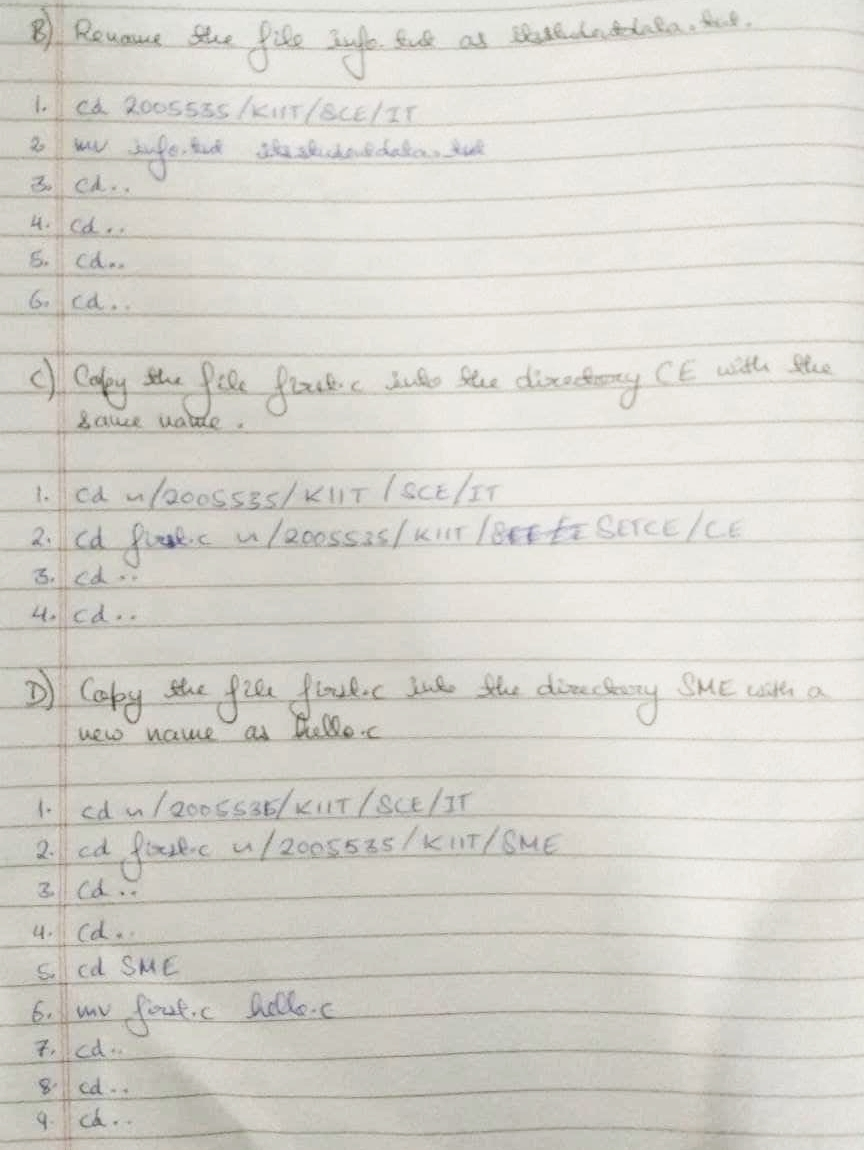 B) Rename the file info.txt as
1. cd 2005535/KIIT/SCE/IT
2. mv info.txt
3. cd..
4. cd..
5. cd..
6. cd..
C) Copy the file first.c into the directory CE with the
same name.
1. cd ~/2005535/KIIT/SCE/IT
2. cd first.c ~/2005535/KIIT/ SETCE/CE
3. cd..
4. cd..
D) Copy the file first.c into the directory SME with a
new name as hello.c
1. cd ~/2005535/KIIT/SCE/IT
2. cd first.c ~/2005535/KIIT/SME
3. cd..
4. cd..
5. cd SME
6. mv first.c hello.c
7. cd..
8. cd..
9. cd..